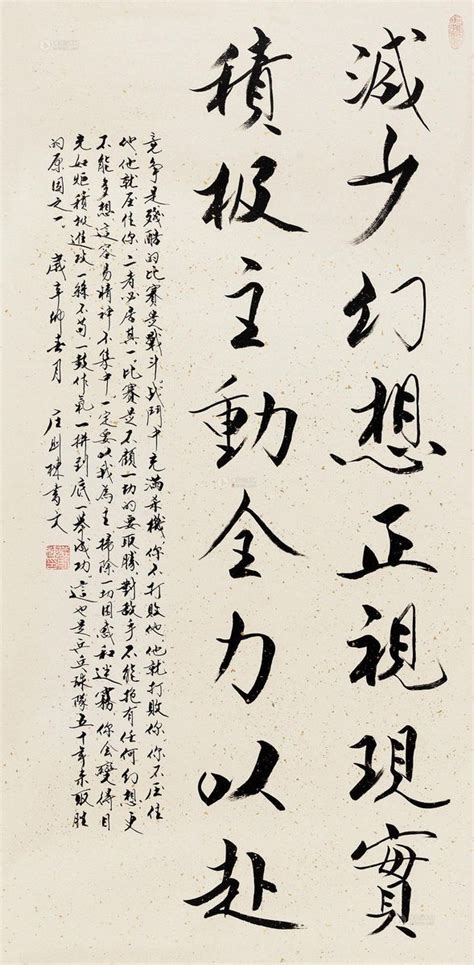 減少幻想正視現實
積极主動全力以赴
竞争是殘酷的比賽是戰斗战鬥中充滿杀機你不打敗他他就打敗你你不压住
他他就压住你二者必居其一比賽是不顧一切的要取勝對敌手不能抱有任何幻想更
不能多想這容易精神不集中一定要以我為主掃除一切困惑和迷霧你会變得目
光如炬積极進攻一絲不苟一鼓作氣一拼到底一舉成功這也是乒乓球隊五十年来取胜
的原因之一 歲辛卯春月 庄則棟書文